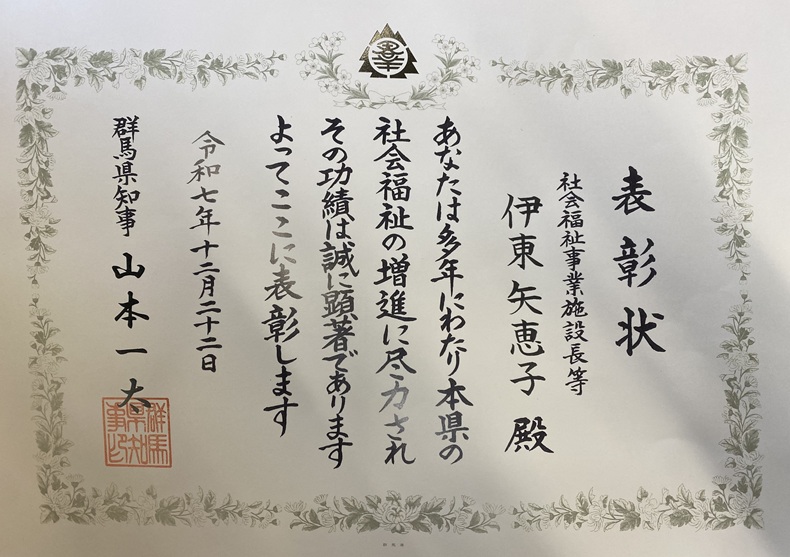 表彰状
社会福祉事業施設長等
伊東矢恵子殿
あなたは多年にわたり本県の
社会福祉の増進に尽力され
その功績は誠に顕著であります
よってここに表彰します
令和七年十二月二十二日
群馬県知事 山本一太
群馬
県知
事印